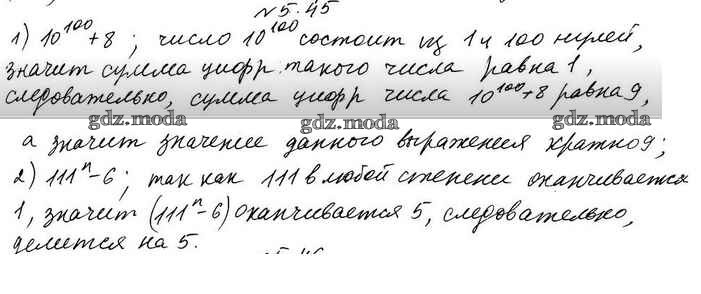 №5.45
1) 10¹⁰⁰+8 ; число 10¹⁰⁰ состоит из 1 и 100 нулей,
значит сумма цифр такого числа равна 1,
следовательно, сумма цифр числа 10¹⁰⁰+8 равна 9,
gdz.moda gdz.moda gdz.moda
а значит значение данного выражения кратно 9;
2) 111ⁿ-6 ; так как 111 в любой степени оканчивается
1, значит (111ⁿ-6) оканчивается 5, следовательно,
делится на 5.